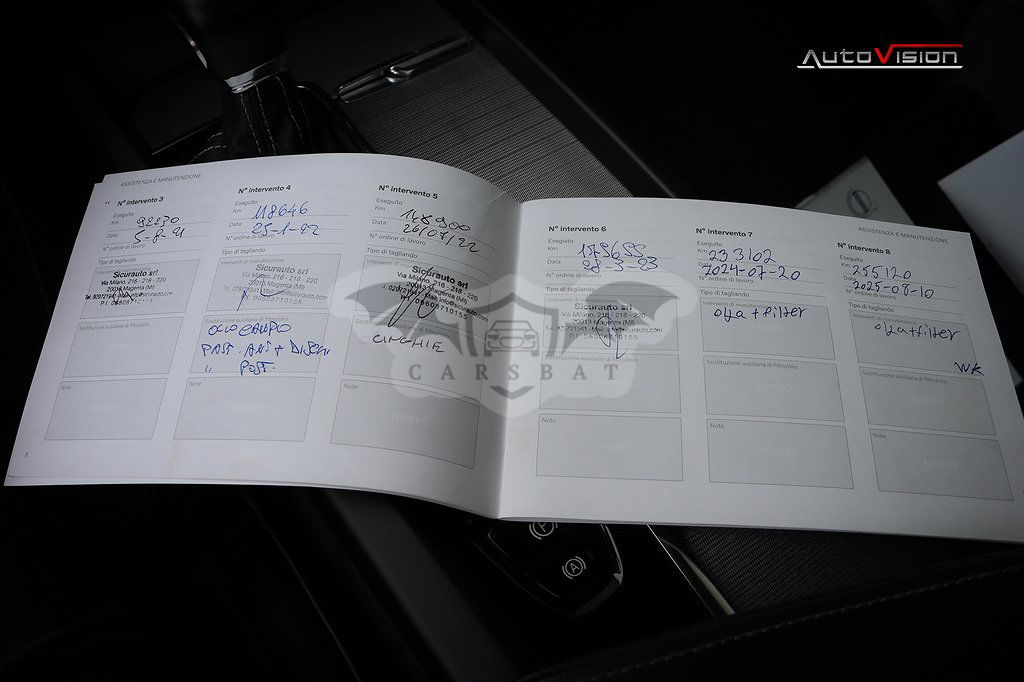 AUTOVISION
ASSISTENZA E MANUTENZIONE
N° intervento 3
Eseguito
Km 92230
Data 5-8-21
N° ordine di lavoro
Tipo di tagliando
Interventi di manutenzione
Sicurauto srl
Via Milano, 216 - 218 - 220
20013 Magenta (MI)
Sostituzione ausiliaria di filtro/olio
Note
TIMBRO
8
N° intervento 4
Eseguito
Km 118646
Data 25-1-22
N° ordine di lavoro
Tipo di tagliando
Interventi di manutenzione
Sicurauto srl
Via Milano, 216 - 218 - 220
20013 Magenta (MI)
OLIO CAMBIO
PAST. ANT + DISCHI
" POST.
Note
TIMBRO
N° intervento 5
Eseguito
Km 148900
Data 26/07/22
N° ordine di lavoro
Tipo di tagliando
Sicurauto srl
Via Milano, 216 - 218 - 220
20013 Magenta (MI)
P.I. 08608710155
CINGHIE
Note
TIMBRO
N° intervento 6
Eseguito
Km
Data 28-3-23
N° ordine di lavoro
Tipo di tagliando
Interventi di manutenzione
Sicurauto srl
Via Milano, 216 - 218 - 220
20013 Magenta (MI)
P.I. 08608710155
Sostituzione ausiliaria di filtro/olio
Note
TIMBRO
N° intervento 7
Eseguito
Km 233102
Data 2024-07-20
N° ordine di lavoro
Tipo di tagliando
Interventi di manutenzione
olja + filter
Sostituzione ausiliaria di filtro/olio
TIMBRO
Note
TIMBRO
ASSISTENZA E MANUTENZIONE
N° intervento 8
Eseguito
Km 255120
Data 2025-08-10
N° ordine di lavoro
Tipo di tagliando
Interventi di manutenzione
olja+filter
WK
Sostituzione ausiliaria di filtro/olio
TIMBRO
Note
TIMBRO
CARSBAT
P
A